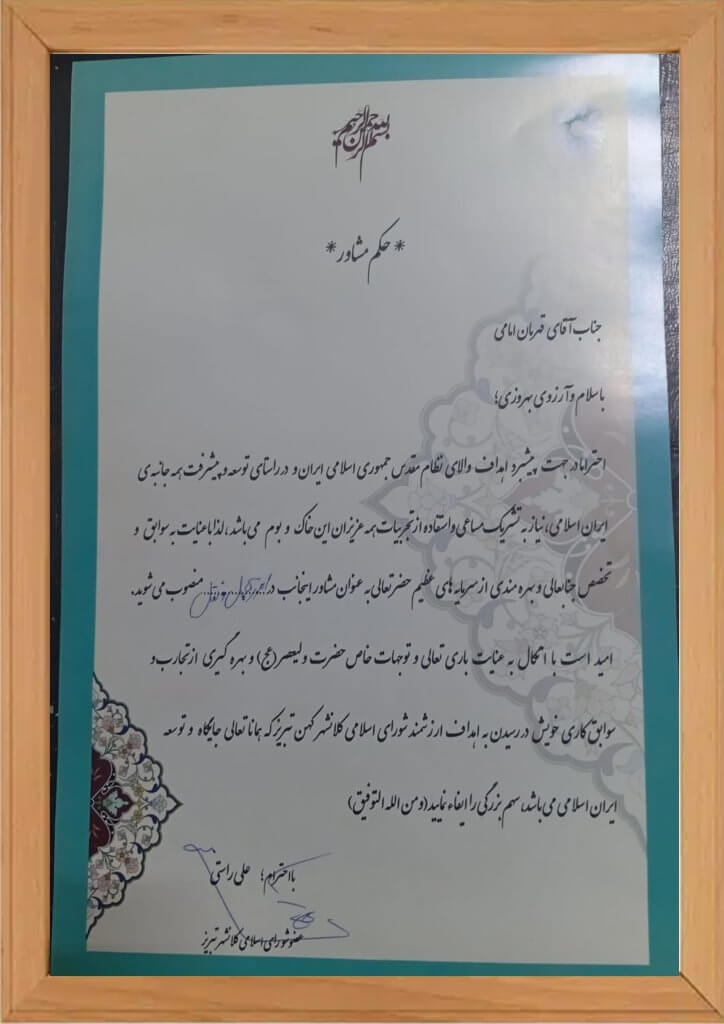 بسم الله الرحمن الرحیم
* حکم مشاور *
جناب آقای قهرمان امامی
با سلام و آرزوی بهروزی؛
احتراما در جهت پیشبرد اهداف والای نظام مقدس جمهوری اسلامی ایران و در راستای توسعه و پیشرفت همه جانبه ی
ایران اسلامی، نیاز به تشریک مساعی و استفاده از تجربیات همه عزیزان این خاک و بوم می باشد، لذا با عنایت به سوابق و
تخصص جنابعالی و بهره مندی از سرمایه های عظیم حضرتعالی به عنوان مشاور اینجانب در امور منصوب می شوید.
امید است با اتکال به عنایت باری تعالی و توجهات خاص حضرت ولیعصر (عج) و بهره گیری از تجارب و
سوابق کاری خویش در رسیدن به اهداف ارزشمند شورای اسلامی کلانشهر کهن تبریز که همانا تعالی جایگاه و توسعه
ایران اسلامی می باشد، سهم بزرگی را ایفاء نمایید (ومن الله التوفیق)
با احترام؛ علی راستی
عضو شورای اسلامی کلانشهر تبریز